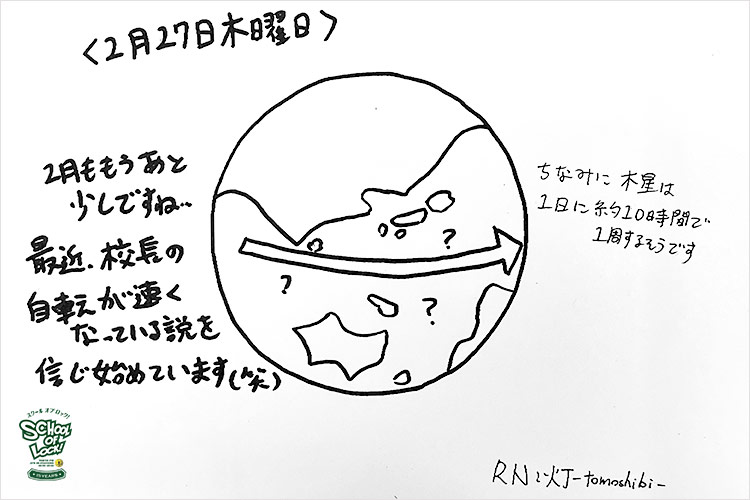 〈2月27日木曜日〉
2月ももうあと
少しですね…
最近、校長の
自転が速く
なっている説を
信じ始めています(笑)
ちなみに 木星は
1日に約10時間で
1周するそうです
?
?
?
スクール オブ ロック!
SCHOOL
OF
LOCK!
RN:灯-tomoshibi-